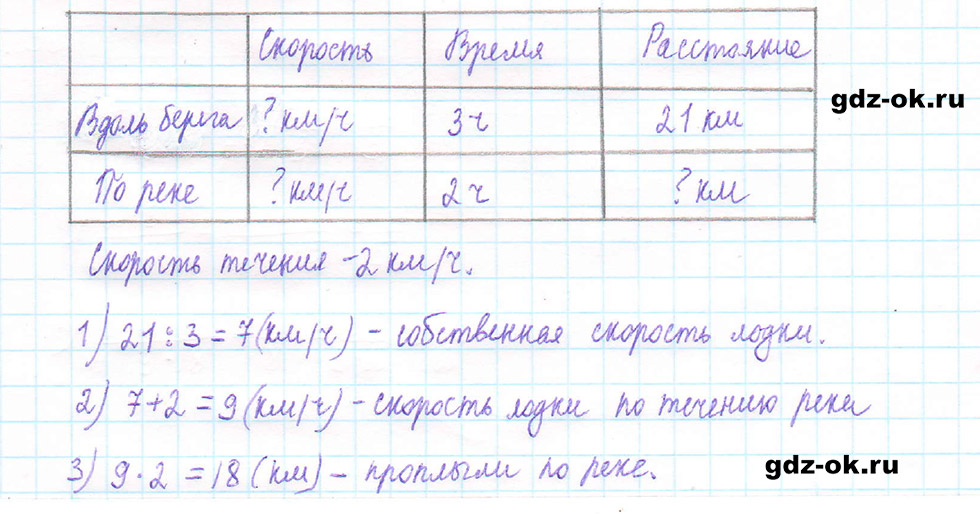 Скорость Время Расстояние
Вдоль берега ? км/ч 3 ч 21 км
gdz-ok.ru
По реке ? км/ч 2 ч ? км
Скорость течения - 2 км/ч.
1) 21 : 3 = 7 (км/ч) - собственная скорость лодки.
2) 7 + 2 = 9 (км/ч) - скорость лодки по течению реки
3) 9 · 2 = 18 (км) - проплыли по реке.
gdz-ok.ru